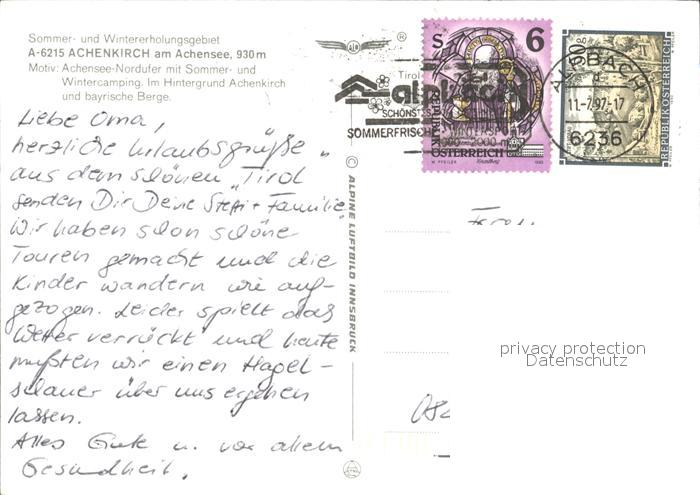 Sommer- und Wintererholungsgebiet
A-6215 ACHENKIRCH am Achensee, 930 m
Motiv: Achensee-Nordufer mit Sommer- und
Wintercamping. Im Hintergrund Achenkirch
und bayrische Berge.
Liebe Oma,
herzliche Urlaubsgrüße
aus dem schönen „Tirol"
senden Dir Deine Steffi + Familie
Wir haben schon schöne
Touren gemacht und die
Kinder wandern wie auf-
gezogen. Leider spielt das
Wetter verrückt und heute
mußten wir einen Hagel-
schauer über uns ergehen
lassen.
Alles Gute u. vor allem
Gesundheit.
© ALPINE LUFTBILD INNSBRUCK
®
Tirol
SCHÖNSTES
SOMMERFRISCHE
WINTERSPORT
S 6
REPUBLIK
ÖSTERREICH
REPUBLIK ÖSTERREICH
ALPBACH
11.-7.97-17
6236
privacy protection
Datenschutz